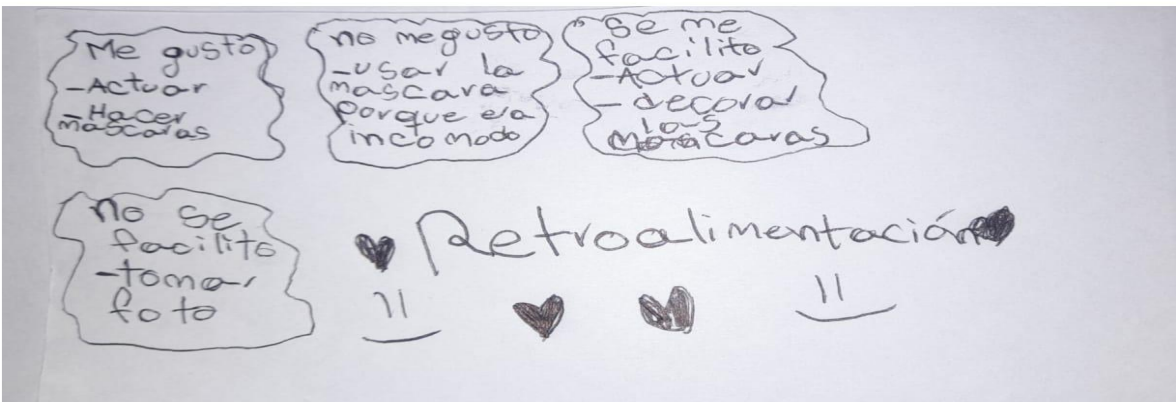 Me gusto
-Actuar
-Hacer
mascaras
no me gusto
-usar la
mascara
porque era
incomodo
Se me
facilito
-Actuar
- decorar
las
mascaras
no se
facilito
-tomar
foto
Retroalimentación